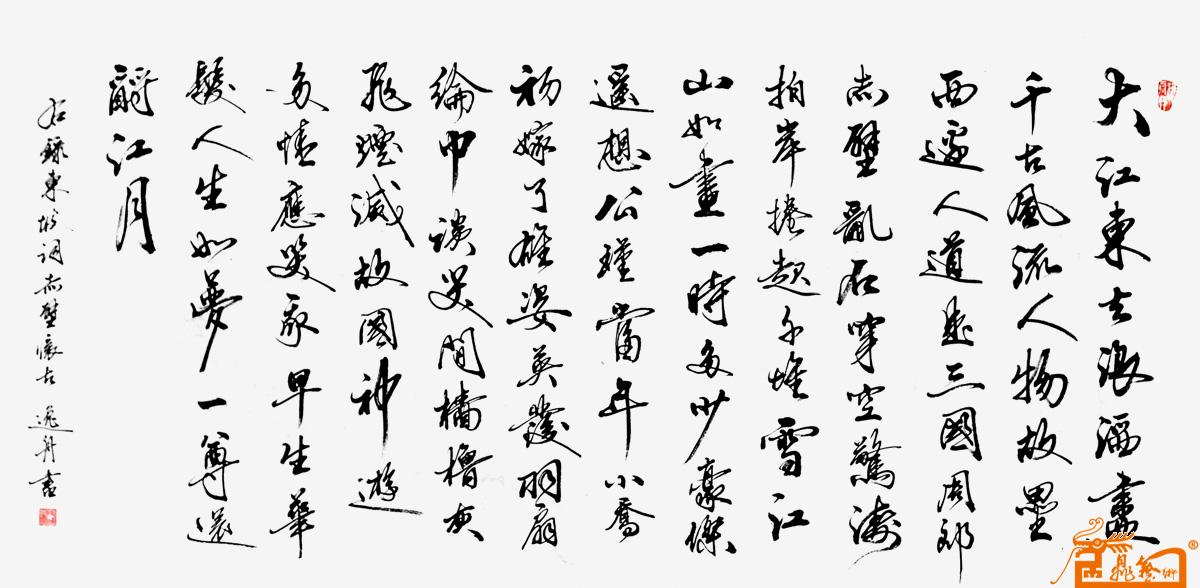 大江東去浪淘盡
千古風流人物故壘
西邊人道是三國周郎
赤壁亂石穿空驚濤
拍岸捲起千堆雪江
山如畫一時多少豪傑
遙想公瑾當年小喬
初嫁了雄姿英發羽扇
綸巾談笑間檣櫓灰
飛煙滅故國神遊
多情應笑我早生華
髮人生如夢一尊還
酹江月
右錄東坡詞赤壁懷古 逸舟書